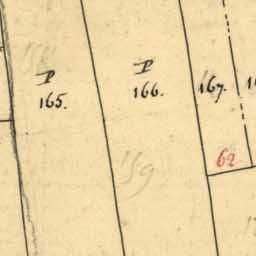 P
165.
P
166.
167.
159
62